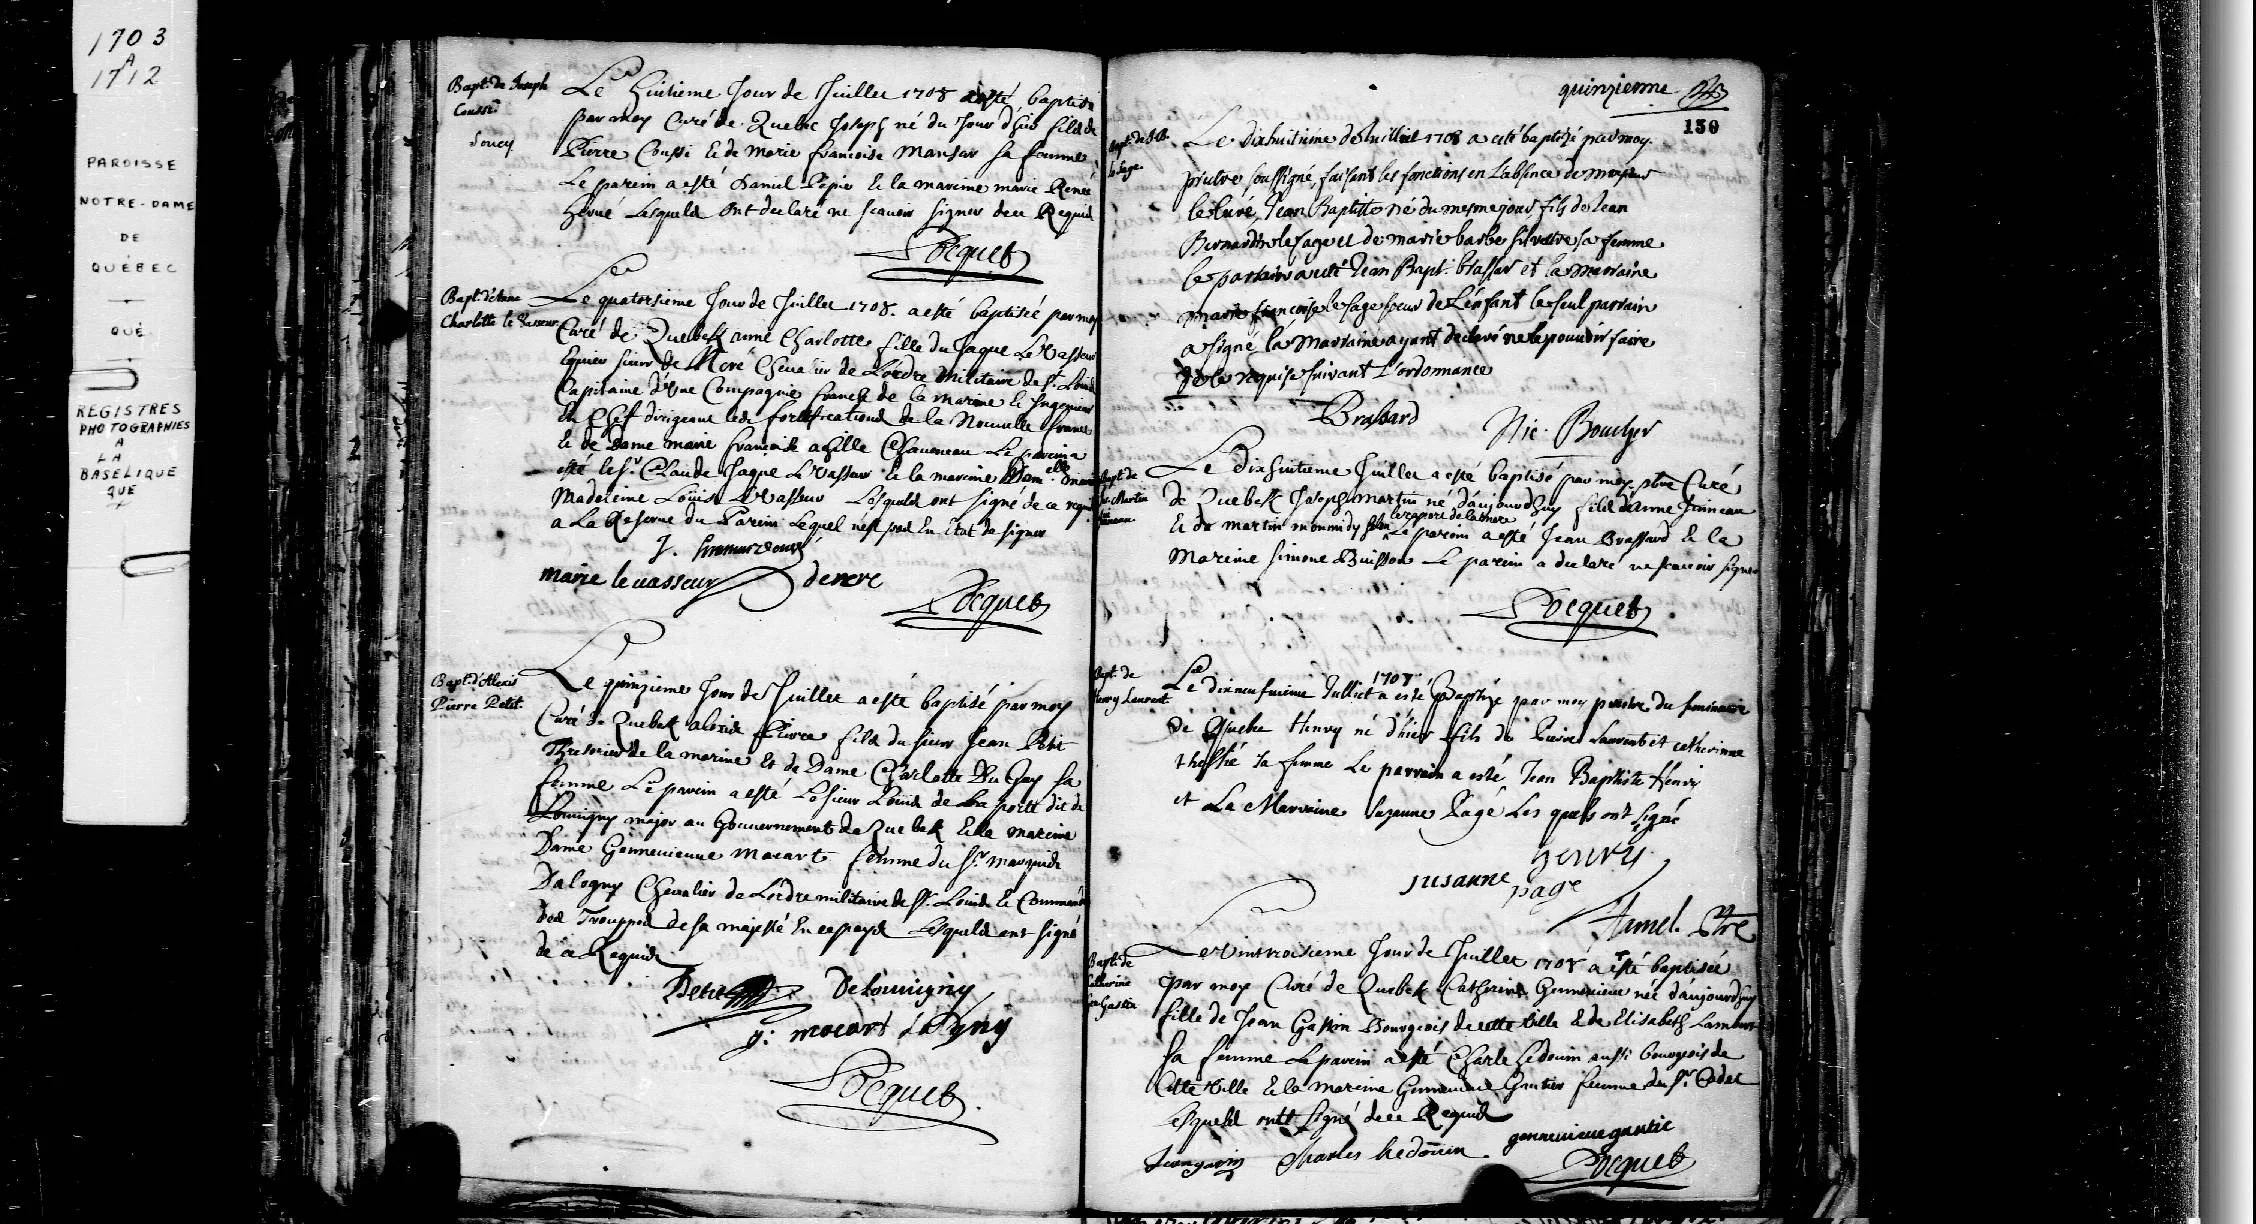 1703
A
1712
PAROISSE
NOTRE-DAME
DE
QUÉBEC
QUÉ
REGISTRES
PHOTOGRAPHIES
A
LA
BASELIQUE
QUE
Bapt. de Joseph
Coussi
Soucy
Le huitieme Jour de Juillet 1708 a esté baptisé
par moy Curé de Quebec Joseph né du Jour d'huy fils de
Pierre Coussi & de Marie francoise Mansar sa femme
Le parein a esté Daniel Pepie & la mareine marie Renée
hervé Lesquels ont declaré ne scavoir signer de ce Requis
Pocquet
Bapt. d'Anne
Charlotte le Vasseur
Le quatorsieme Jour de Juillet 1708. a esté baptisée par moy
Curé de Quebek anne Charlotte fille du Jaque Le Vasseur
sieur de Neré Chevalier de Lordre Militaire de St. Louis
Capitaine d'Une Compagnie franche de la marine & Ingenieur
En Cheff dirigeant les fortifications de la Nouvelle france
& de Dame marie françoise Chaveneau Le parein a
esté le Sr. Claude Jaque LeVasseur & la mareine Dam.elle marie
Madeleine Loüise LeVasseur Lesquels ont signé de ce requis
a La Reserve du Parein Lequel n'est pas En Etat de signer
marie levasseur denere
Pocquet
Bapt. d'Alexis
Pierre Petit
Le quinzieme Jour de Juillet a esté baptisé par moy
Curé de Quebek alexis Pierre fils du sieur Jean Petit
Thresorier de la marine & de Dame Charlotte Du Guy sa
femme Le parein a esté Le sieur Loüis de La porte dit de
Louvigny major au Gouvernement de Quebek & la mareine
Dame Gennevienne Macart femme du Sr. marquis
Dalogny Chevalier de Lordre militaire de St. Louis & Command.
des Trouppes de sa majesté En ce pays Lesquels ont signé
de ce Requis
Petit De Louvigny
g: macart
Pocquet
quinzienne
130
Bapt. de J.B.
le Sage
Le dixhuitiéme de Juillet 1708 a esté baptizé par moy
prestre soussigné, faisant les fonctions en l'absence de monsieur
le Curé, Jean Baptiste né du mesme jour fils de Jean
Bernardin le sage et de marie barbe silvestre sa femme
le parrain a esté Jean Bapt. brassar et la marraine
marie françoise le sage soeur de L'enfant le seul parrain
a signé la Marraine ayant declaré ne le pouvoir faire
de ce requise suivant l'ordonnance
Brassard Nic. Boucher
Bapt. de
Jos. Martin
Le dixhuitieme Juillet a esté baptisé par moy ptre Curé
de Quebek Joseph martin né d'aujourdhuy fils d'anne
& de martin selon le raport de la mere Le parein a esté Jean Brassard & la
Mareine simone Buisson Le parein a declaré ne scavoir signer
Pocquet
Bapt. de
henry Laurent
Le dixneufvieme Julliet 1708 a esté Baptizé par moy prestre du seminaire
de Quebec Henry né d'hier fils de Pierre Laurent et catherinne
sa femme Le parrain a esté Jean Baptiste Henry
et La Marraine Suzanne Pagé Les quels ont signé
henry
susanne page
Hamel Ptre
Bapt. de
Catherine
Gen. Gastin
Le Vint troisieme Jour de Juillet 1708 a esté baptisée
par moy Curé de Quebek Catherine Gennevieve née d'aujourdhuy
fille de Jean Gastin Bourgeois de cette Ville & de Elisabeth Lambert
sa femme Le parein a esté Charle hedouin aussi bourgeois de
Cette Ville & la mareine Gennevieve Gautier femme du Sr. Cadet
Lesquels ont signé de ce Requis
Charles hedouin gennevieve gautie
Pocquet